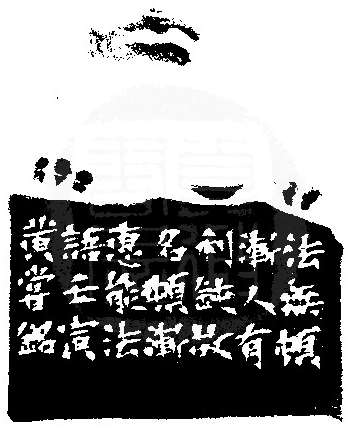 法無頓
漸人有
利鈍故
名頓漸
惠能法
語壬寅
黄嘗銘